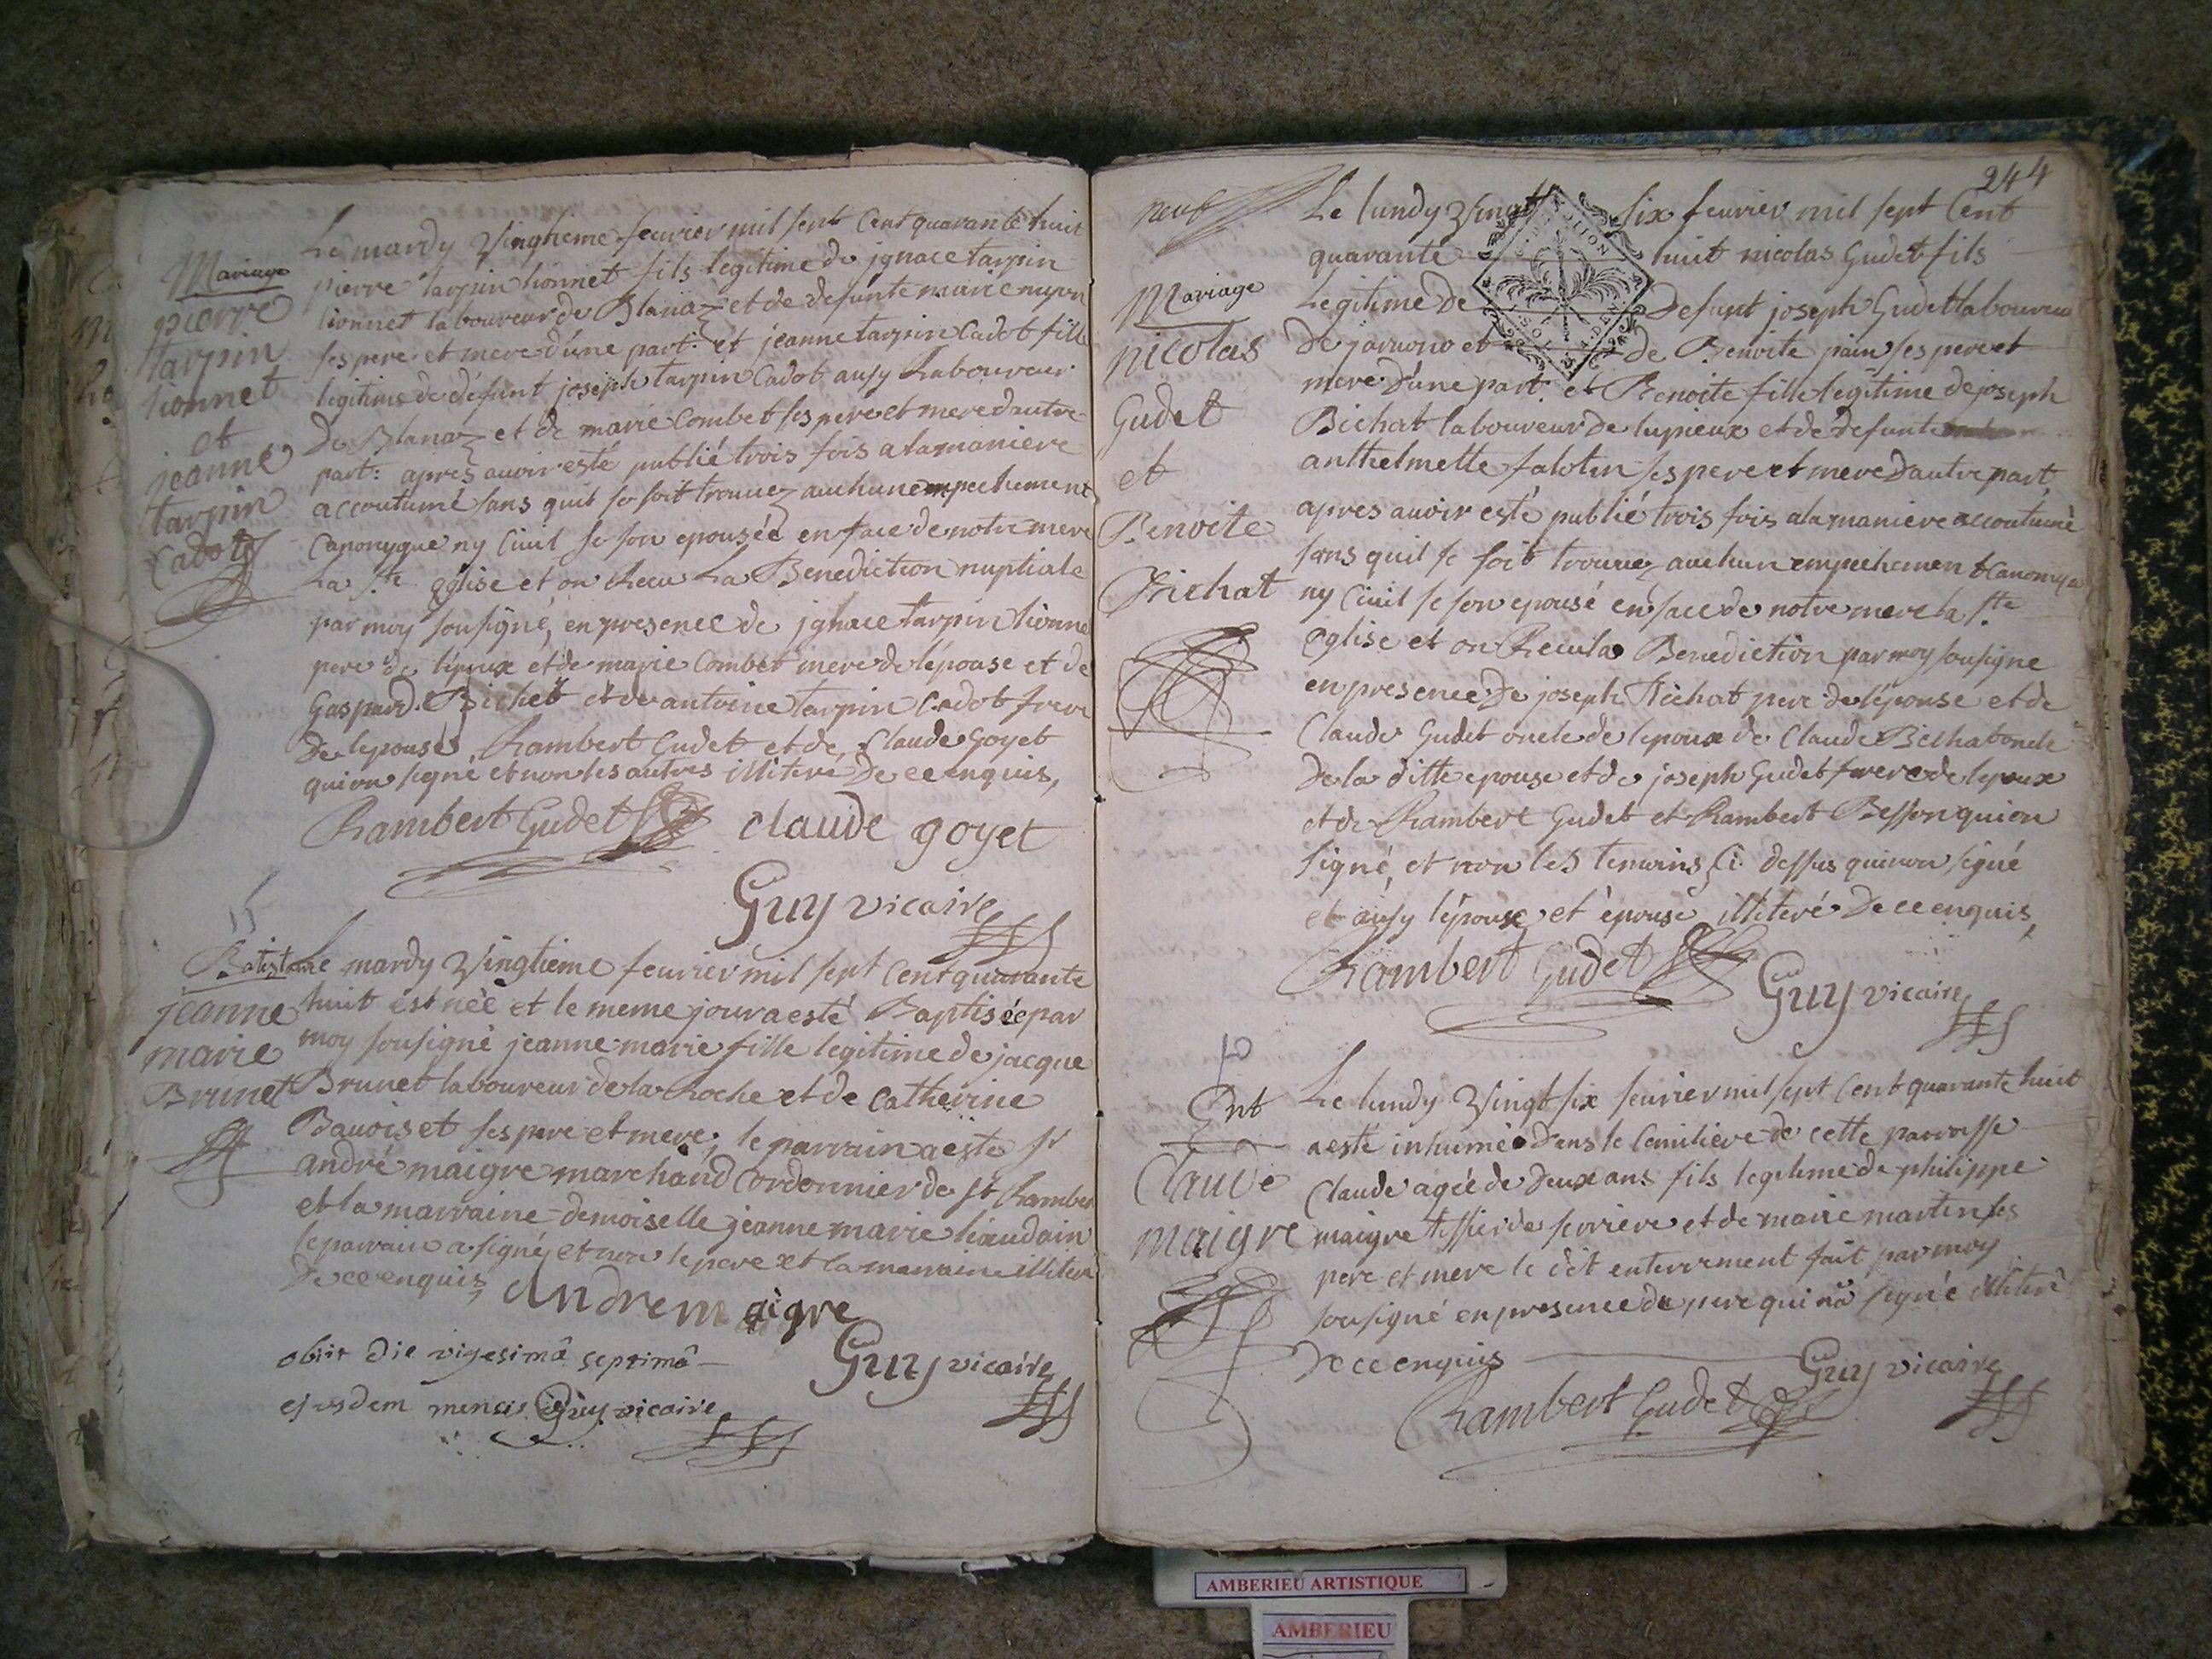 Mariage
pierre
tarpin
lionnet
et
jeanne
tarpin
Cadot
Le mardy vingtieme feurier mil sept Cent quarante huit
pierre tarpin lionnet fils legitime de jgnace tarpin
lionnet laboureur de Blanaz et de defunte marie
ses pere et mere d'une part. et jeanne tarpin Cadot fille
legitime de défunt joseph tarpin Cadot ausy Laboureur
De Blanaz et de marie Combet ses pere et mere dautre
part: apres auoir esté publié trois fois a la maniere
accoutumé sans quil se soit trouuez auchun empechement
Canonyque ny Ciuil se son epousée en face de notre mere
La Ste église et on Recu La Benediction nuptiale
par moy sousigné, en presence de jgnace tarpin lionne
pere de l'époux et de marie Combet mere de lépouse et de
Gaspard Bichet et de antoine tarpin Cadot frere
De lepouse, Rambert Gudet et de Claude Goyet
qui on signé et non les autres illiteré De ce enquis,
Rambert Gudet claude goyet
Guy vicaire
Batisteme
jeanne
marie
Brunet
Le mardy vingtieme feurier mil sept Cent quarante
huit est née et le meme jour a esté Baptisée par
moy sousigné jeanne marie fille legitime de jacque
Brunet laboureur de la Roche et de Catherine
Bauoiset ses pere et mere, le parrain a este sr
andré maigre marchand Cordonnier de st Ramber
et la marraine demoiselle jeanne marie liaudain
le parrain a signé et non le pere et la marraine illiteré
De ce enquis, andre maigre
Guy vicaire
obiit die vigesimâ septimâ
ejusdem mensis Guy vicaire
244
neuf
Mariage
nicolas
Gudet
et
Benoite
Bichat
Le lundy vingt six feurier mil sept Cent
quarante huit nicolas Gudet fils
Legitime de Defunt joseph Gudet laboureur
De jauuono et de Benoite pain ses pere et
mere d'une part. et Benoite fille legitime de joseph
Bichat laboureur de lupieux et de defunte
anthelmette falotin ses pere et mere Dautre part,
apres auoir esté publié trois fois a la maniere accoutumé
sans quil se soit trouuez auchun empechement Canonyq
ny Ciuil se son epousé en face de notre mere la Ste
eglise et on Recu la Benediction par moy sousigne
en presence De joseph Bichat pere de lépouse et de
Claude Gudet oncle de lepoux de Claude Bichat oncle
De la ditte epouse et de joseph Gudet frere de lepoux
et de Rambert Gudet et Rambert Besson qui on
signé, et non les temoins Ci dessus qui non signé
et ausy lépoux et épouse illiteré De ce enquis,
Rambert Gudet Guy vicaire
Ent
Claude
maigre
Le lundy vingt six feurier mil sept Cent quarante huit
a esté inhumé Dans le Cemitiere de cette parroisse
Claude agée de Deux ans fils legitime de philippe
maigre tissier de serriere et de marie martin ses
pere et mere le dit enterrement fait par moy
sousigné en presence du pere qui na signé illiteré
De ce enquis Guy vicaire
Rambert Gudet
AMBERIEU ARTISTIQUE
AMBERIEU